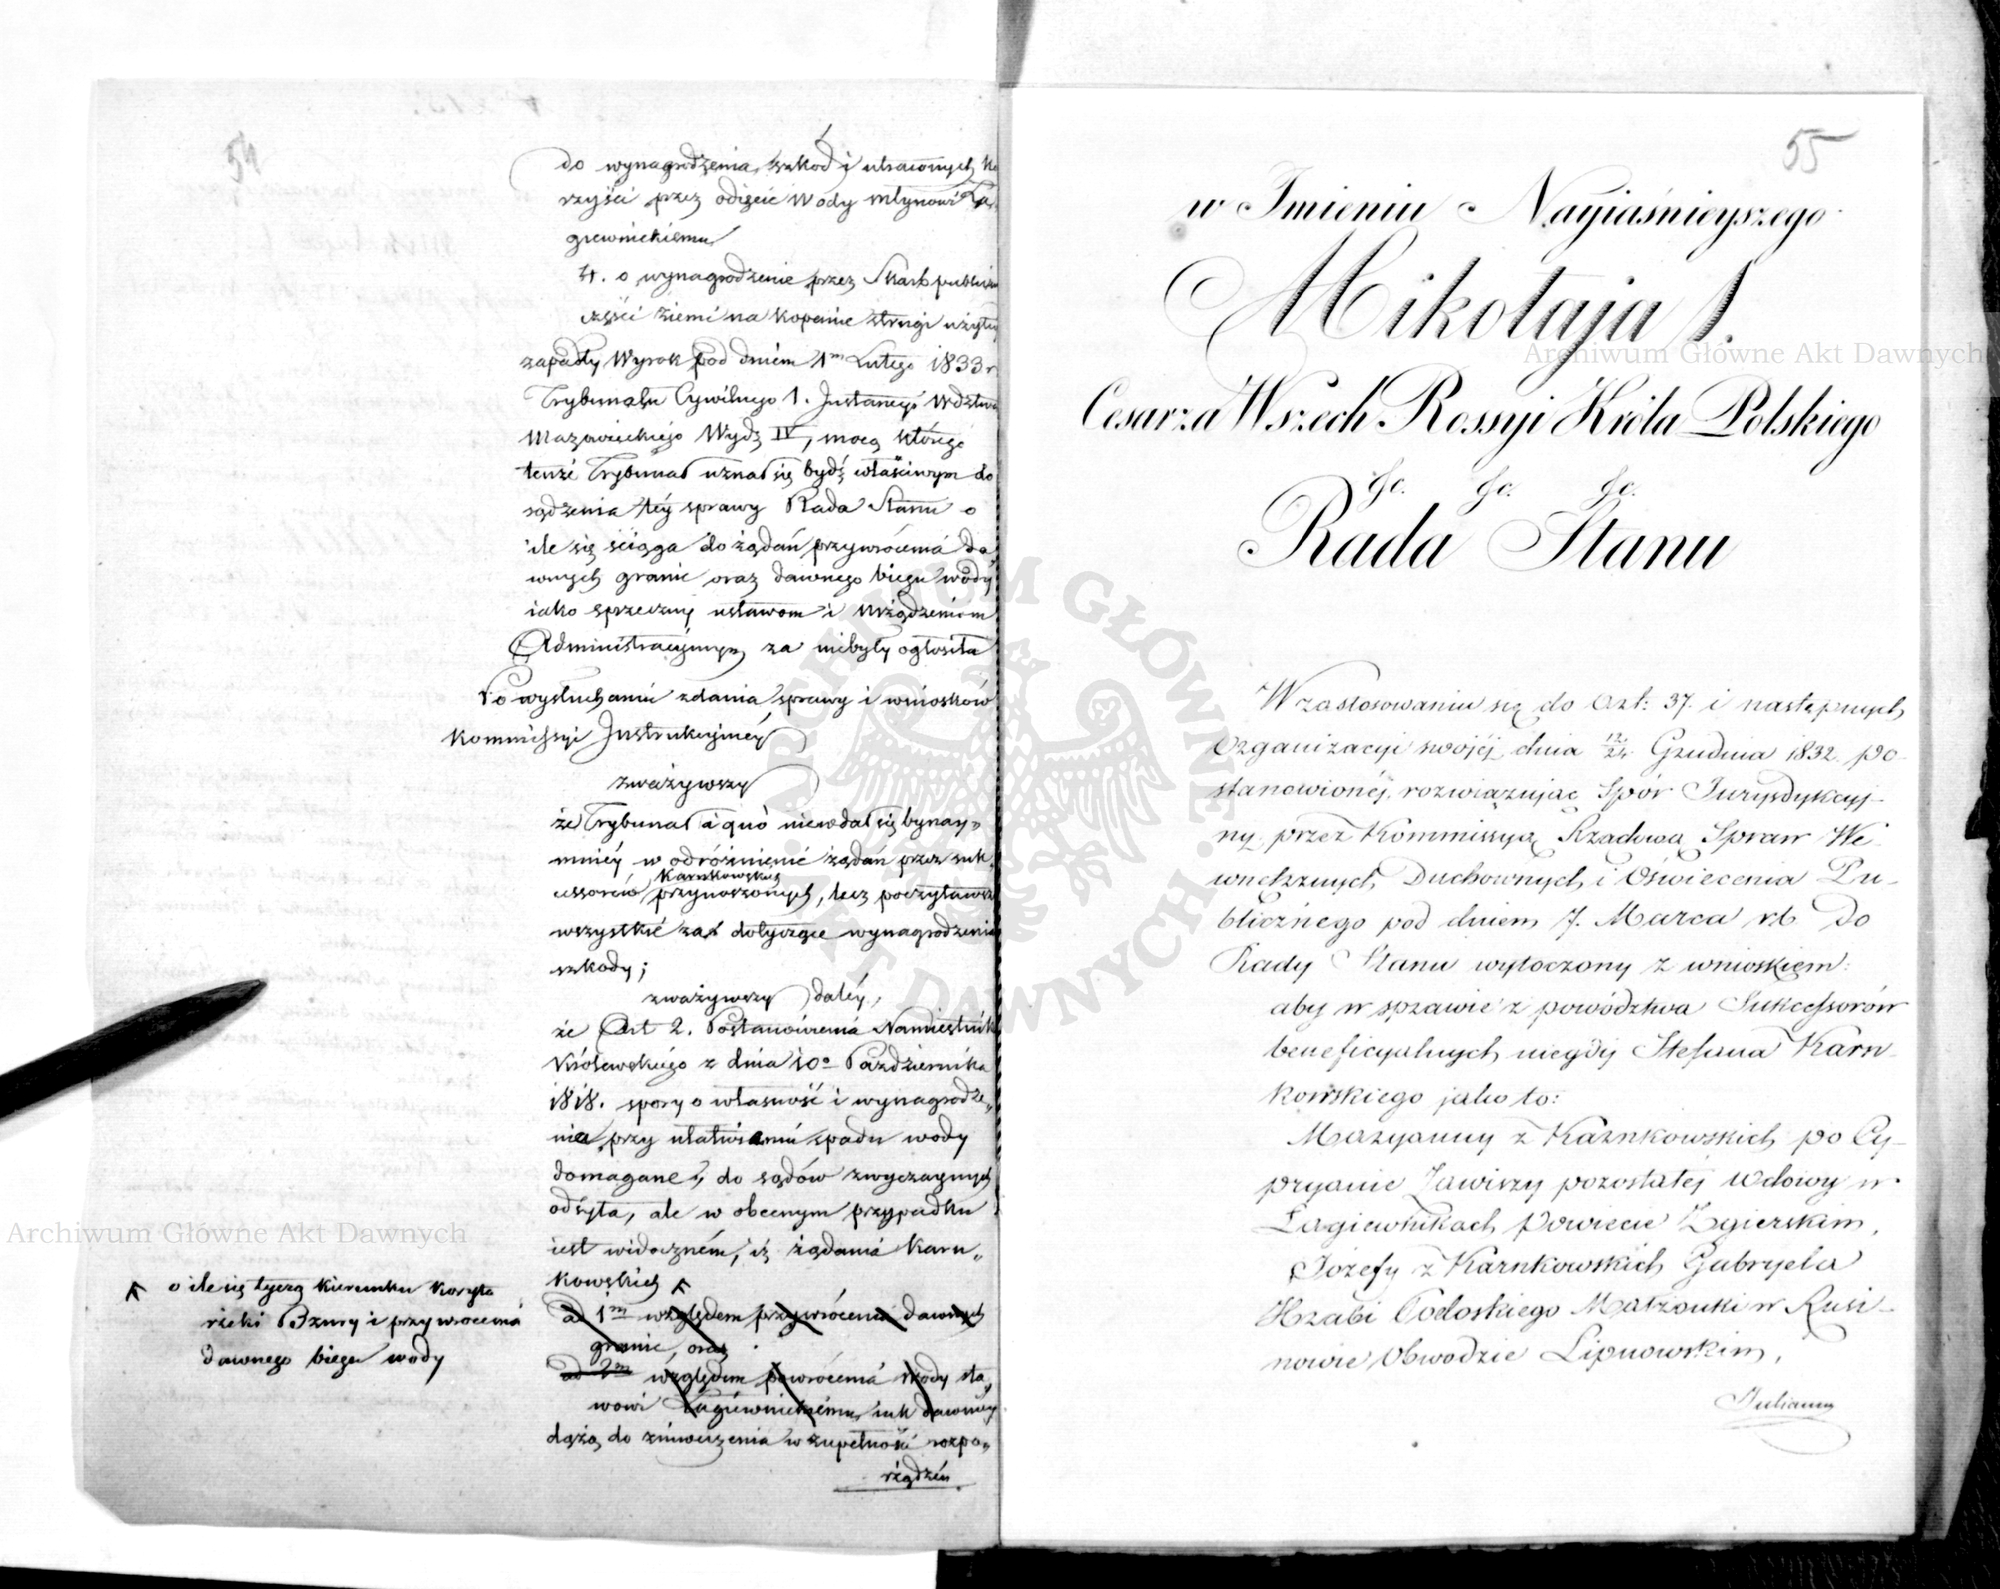 54
do wynagrodzenia szkód i utraconych ko
rzyści przez odięcie Wody młynowi Ła„
giewnickiemu
4. o wynagrodzenie przez Skarb publiczny
części ziemi na kopanie strugi użytey
zapadły Wyrok pod dniem 1m Lutego 1833 r
Trybunału Cywilnego 1. Instancyi Wdztwa
Mazowieckiego Wydz IV, mocą którego
tenże Trybunał uznał się bydź właściwym do
sądzenia téy sprawy Rada Stanu o
ile się ściąga do żądań przywrócenia da
wnych granic oraz dawnego biegu wody
iako sprzeczny ustawom i urządzeniom
Administracyinym za niebyły ogłosiła
Po wysłuchaniu zdania sprawy i wniosków
Kommissyi Instrukcyinéy
zważywszy
że Trybunał a quó niewdał się bynay„
mniéy w odróżnienié żądań przez suk„
cessorów Karnkowskich przynoszonych, lecz poczytawszy
wszystkié za dotyczące wynagrodzenia
szkody;
zważywszy daléy,
że Art 2. Postanowienia Namiestnika
Królewskiego z dnia 10o Października
1818. spory o własność i wynagrodze„
nia przy ułatwianiu spadu wody
domagane, do sądów zwyczaynych
odsyła, ale w obecnym przypadku
iest widoczném, iż żądania Karn„
kowskich
o ile się tyczą kierunku Koryta
rzeki Bzury i przywrócenia
dawnego biegu wody
ad 1m względem przywrócenia dawnych
granic, oraz
ad 2m względem powrócenia Wody sta„
wowi Łagiewnickiemu, iak dawniéy
dążą do zniweczenia w zupełności rozpo„
rządzeń
55
w Imieniu Nayiaśnieyszego
Mikołaja I.
Cesarza Wszech Rossyi Króla Polskiego
&c. &c. &c.
Rada Stanu
W zastosowaniu się do Art: 37. i następnych
Organizacyi swojéj dnia 12/24 Grudnia 1832. po-
stanowionéj, rozwiązując Spór Jurysdykcyj-
ny przez Kommissyą Rządową Spraw We-
wnętrznych Duchownych i Oświecenia Pu-
blicznego pod dniem 7. Marca rb Do
Rady Stanu wytoczony z wnioskiem:
aby w sprawie z powództwa Sukcessorów
beneficyalnych niegdy Stefana Karn-
kowskiego jako to:
Maryanny z Karnkowskich po Cy-
pryanie Zawiszy pozostałej Wdowy w
Łagiewnikach Powiecie Zgierskim,
Józefy z Karnkowskich Gabryela
Hrabi Podoskiego Małżonki w Rusi-
nowie Obwodzie Lipnowskim,
Julianny
Archiwum Główne Akt Dawnych
Archiwum Główne Akt Dawnych
ARCHIWUM GŁÓWNE AKT DAWNYCH